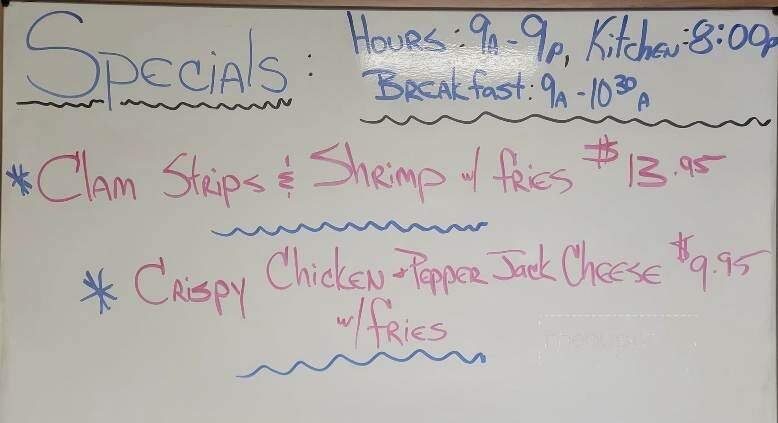 Specials: Hours: 9A-9p, Kitchen: 8:00p
Breakfast: 9A-10³⁰A
* Clam Strips & Shrimp w/ fries $13.95
* Crispy Chicken + Pepper Jack Cheese $9.95
w/ fries